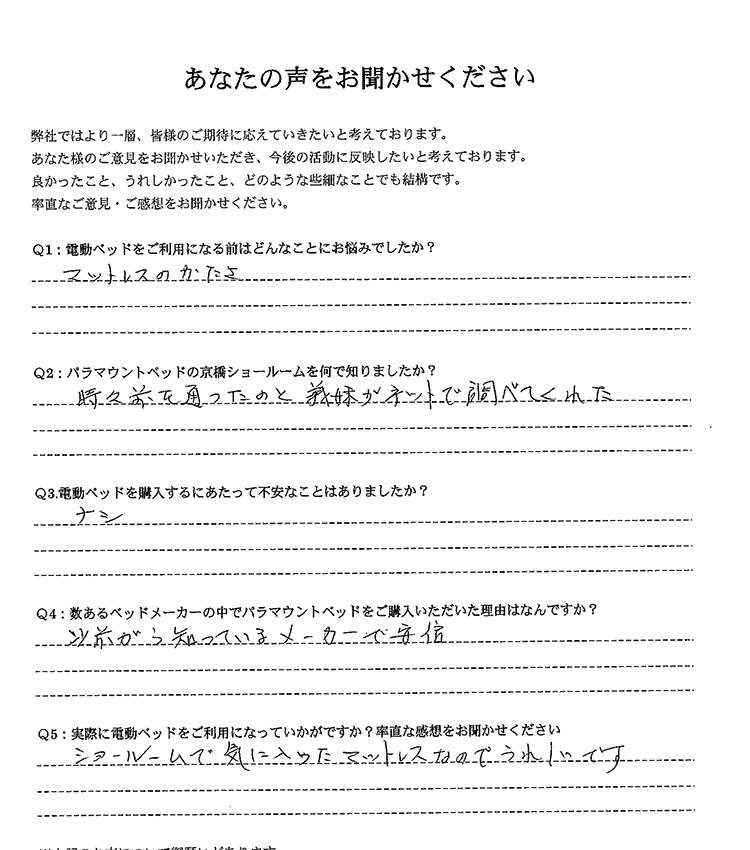 あなたの声をお聞かせください
弊社ではより一層、皆様のご期待に応えていきたいと考えております。
あなた様のご意見をお聞かせいただき、今後の活動に反映したいと考えております。
良かったこと、うれしかったこと、どのような些細なことでも結構です。
率直なご意見・ご感想をお聞かせください。
Q1：電動ベッドをご利用になる前はどんなことにお悩みでしたか？
マットレスのかたさ
Q2：パラマウントベッドの京橋ショールームを何で知りましたか？
時々前を通ったのと義妹がネットで調べてくれた
Q3.電動ベッドを購入するにあたって不安なことはありましたか？
ナシ
Q4：数あるベッドメーカーの中でパラマウントベッドをご購入いただいた理由はなんですか？
以前から知っているメーカーで安信
Q5：実際に電動ベッドをご利用になっていかがですか？率直な感想をお聞かせください
ショールームで気に入ったマットレスなのでうれしいです